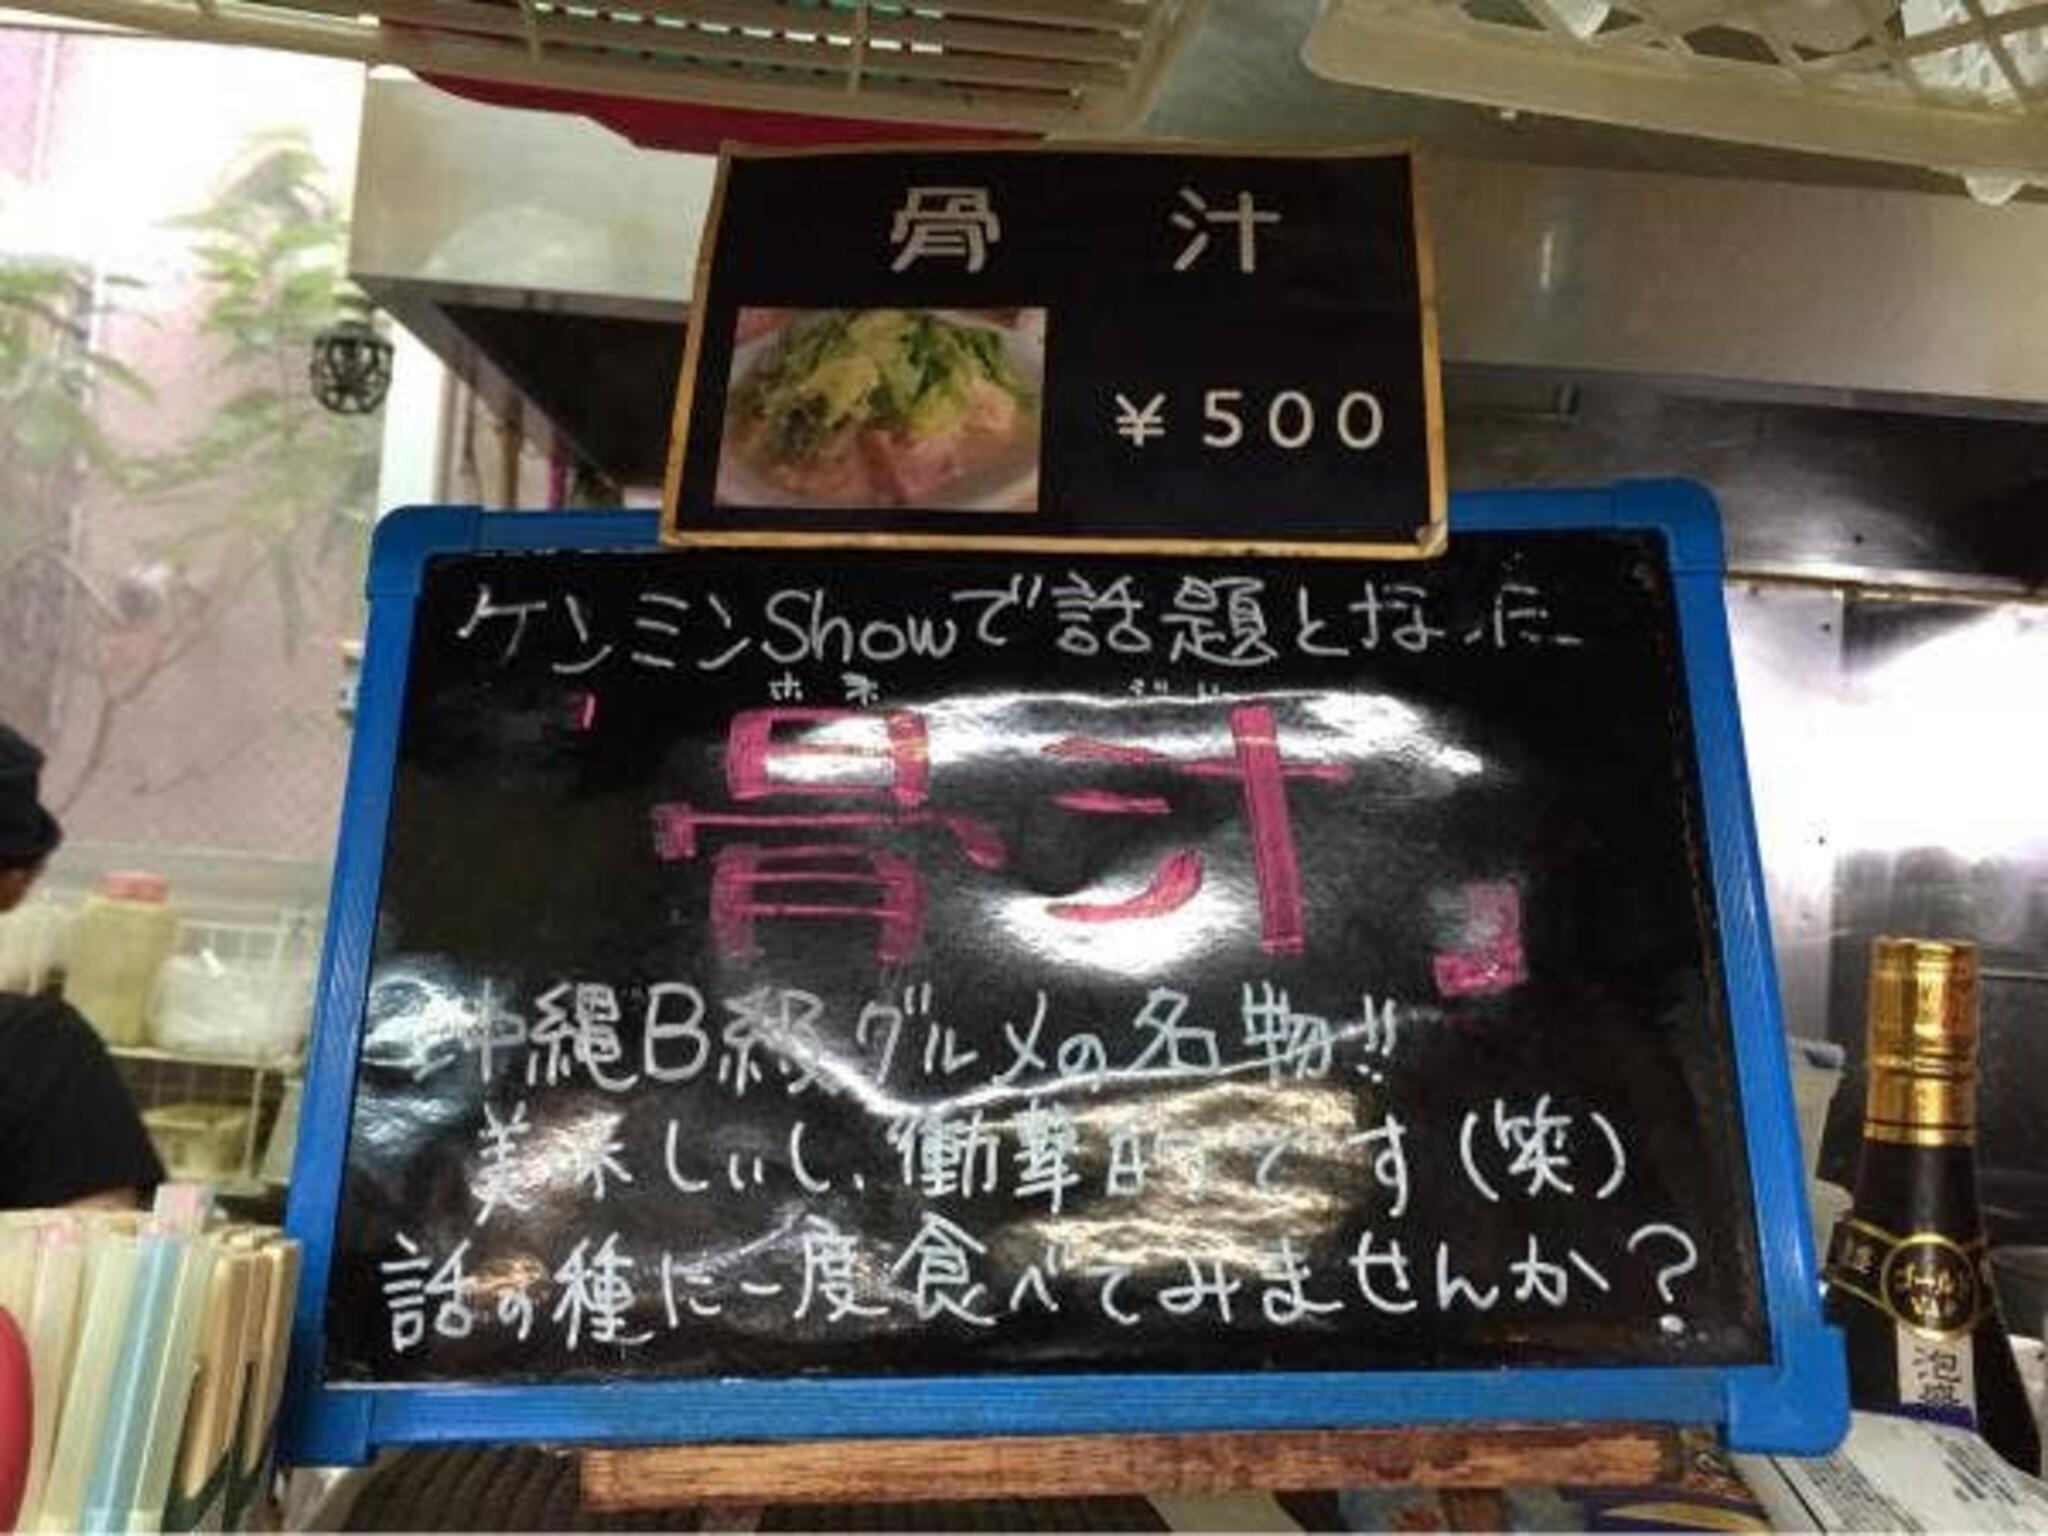 骨 汁
¥500
ケンミンShowで話題とな
ホネ ジル
「骨汁」
沖縄B級グルメの名物!!
美味しいし、衝撃的です(笑)
話の種に一度食べてみませんか?
泡盛